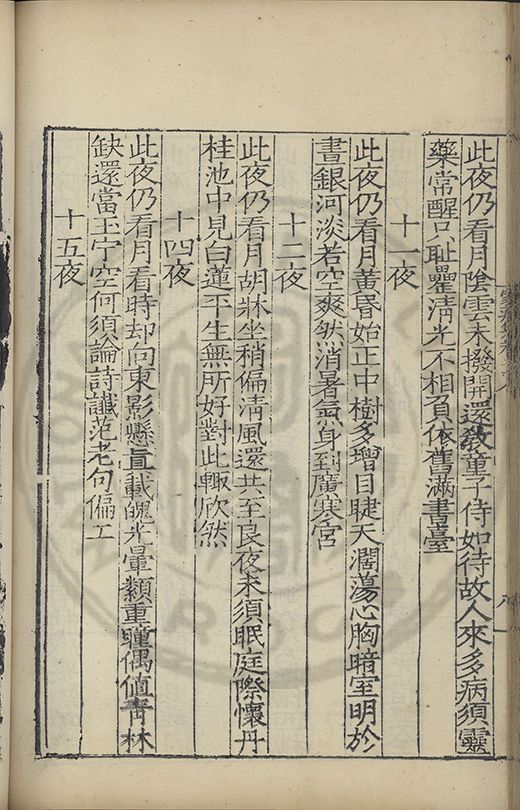 此夜仍看月陰雲未撥開還教童子侍如待故人來多病須靈
藥常醒只恥罍清光不相負依舊滿書臺
十一夜
此夜仍看月黃昏始正中樹多增目睫天濶蕩心胸暗室明於
晝銀河淡若空爽然消暑氣身到廣寒宮
十二夜
此夜仍看月胡牀坐稍偏清風還共至良夜未須眠庭際懷丹
桂池中見白蓮平生無所好對此輙欣然
十四夜
此夜仍看月看時却向東影懸眞載魄光暈纇重瞳偶値靑林
缺還當玉宇空何須論詩讖范老句偏工
十五夜